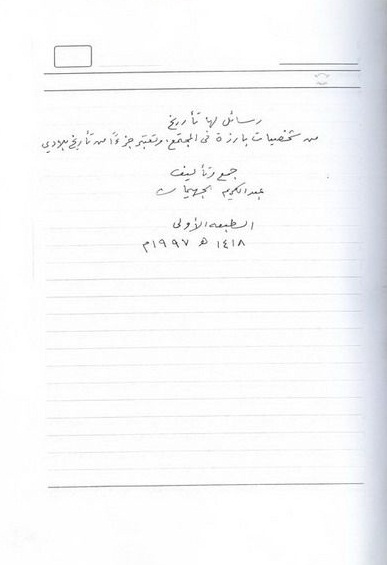 رسائل لها تأريخ
من شخصيات بارزة في المجتمع، وتعتبر جزءًا من تأريخ بلادي
جمع وتأليف
عبدالكريم الجهيمان
الطبعه الأولى
١٤١٨ هـ ١٩٩٧م